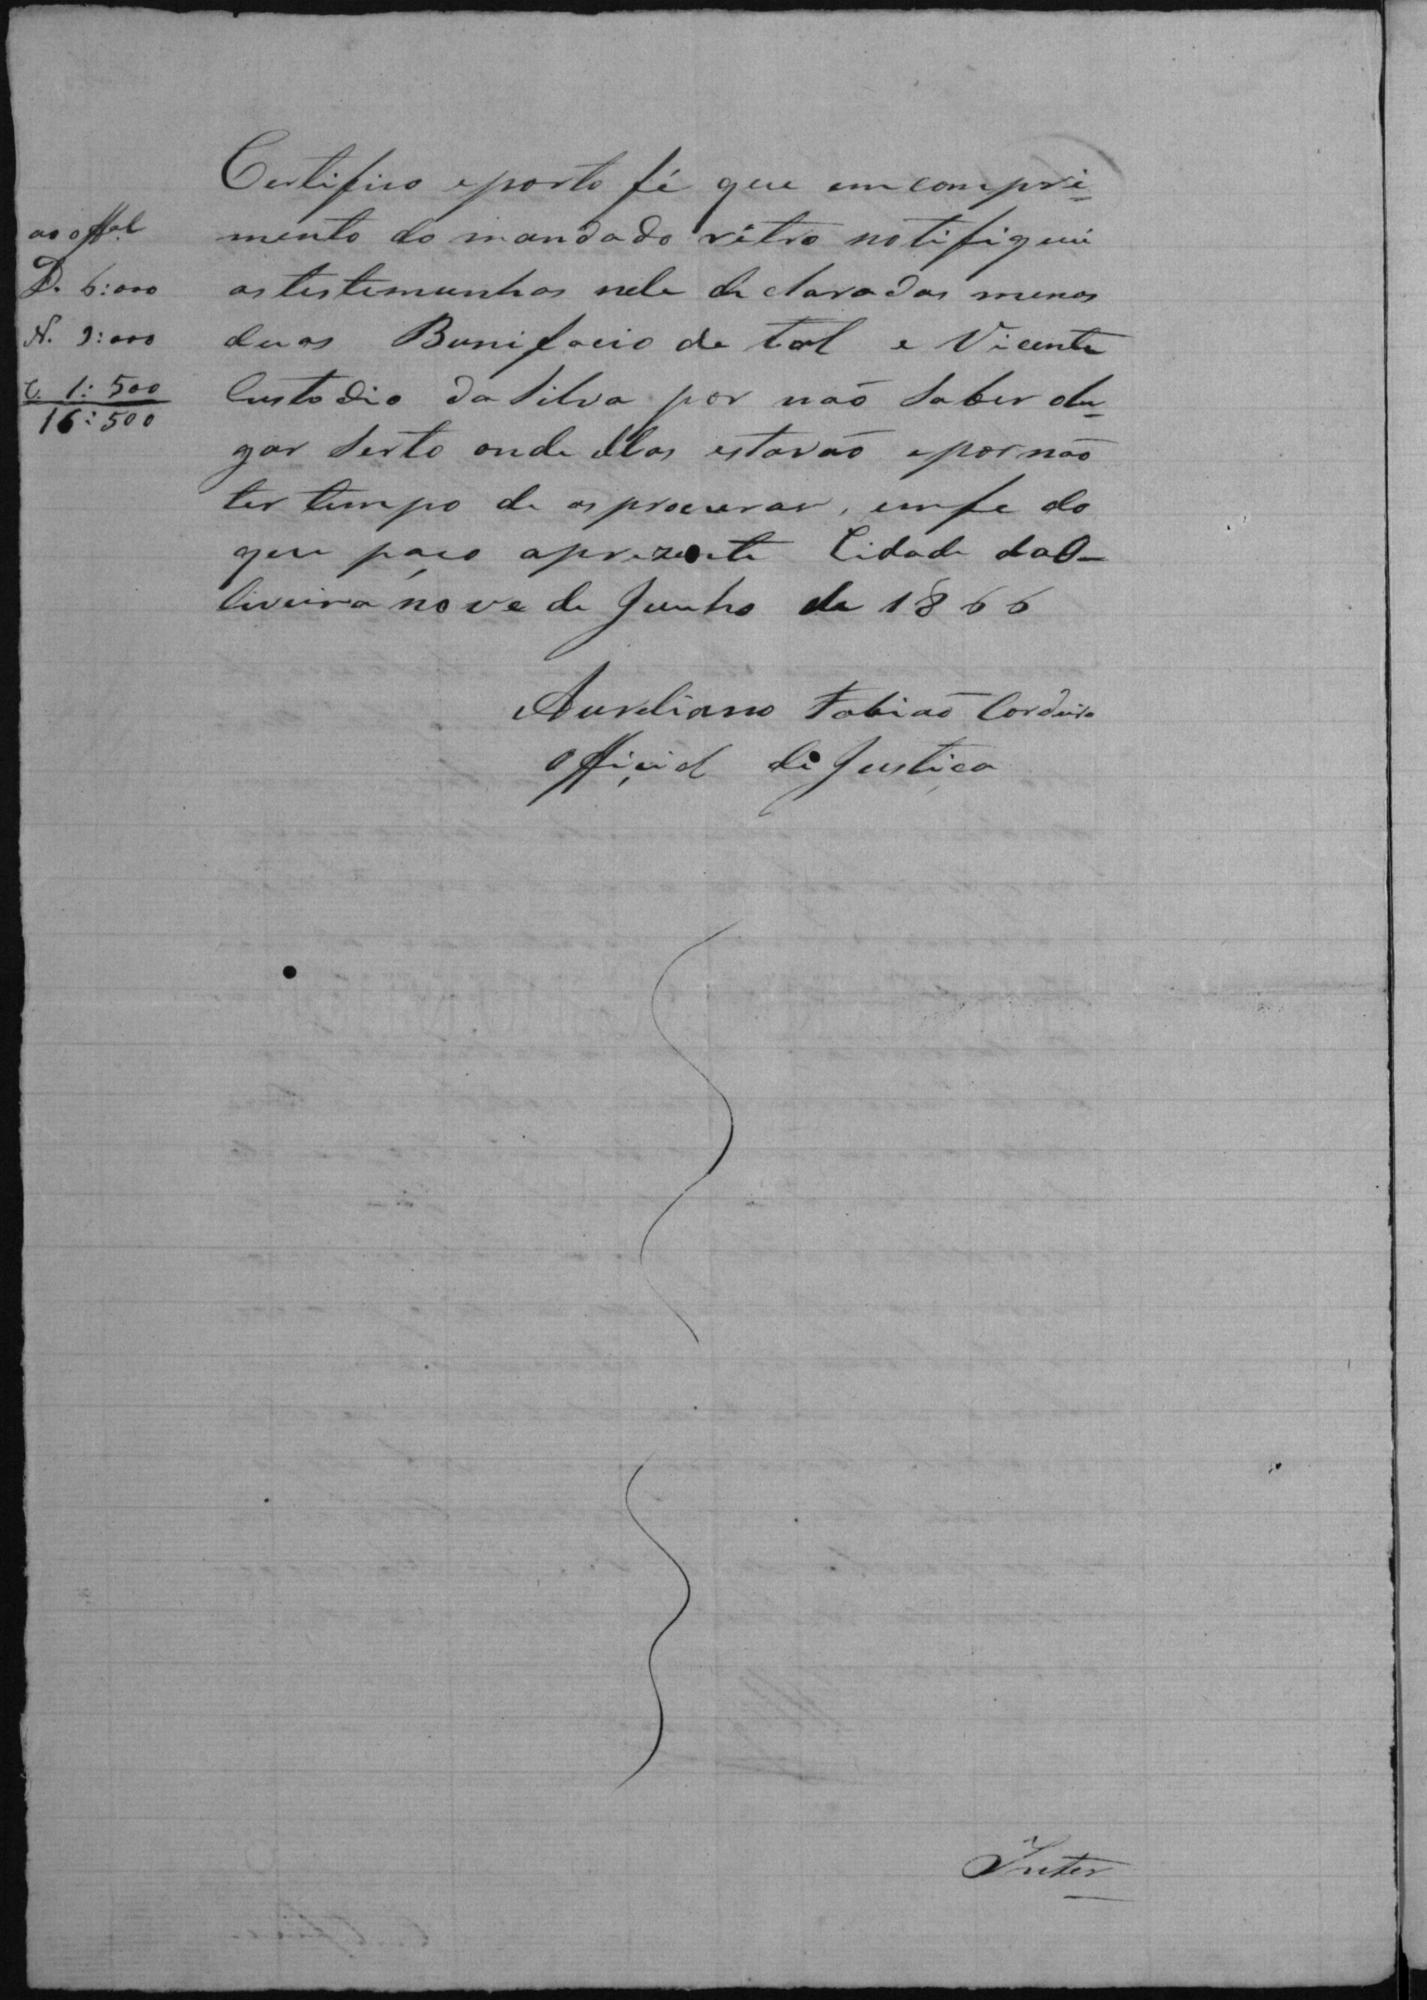 Certifico e porto fé que em compri-
mento do mandado retro notifiquei
as testemunhas nele declaradas menos
duas Bonifacio de tal e Vicente
Custodio da Silva por não saber lu-
gar serto onde ellas estavão e por não
ter tempo de as procurar, em fe do
que paço a prezente Cidade da O-
liveira nove de Junho de 1866
Aureliano Fabiaõ Cordeiro
Official de Justiça
ao offal
D. 6:000
N. 9:000
C. 1:500
16:500